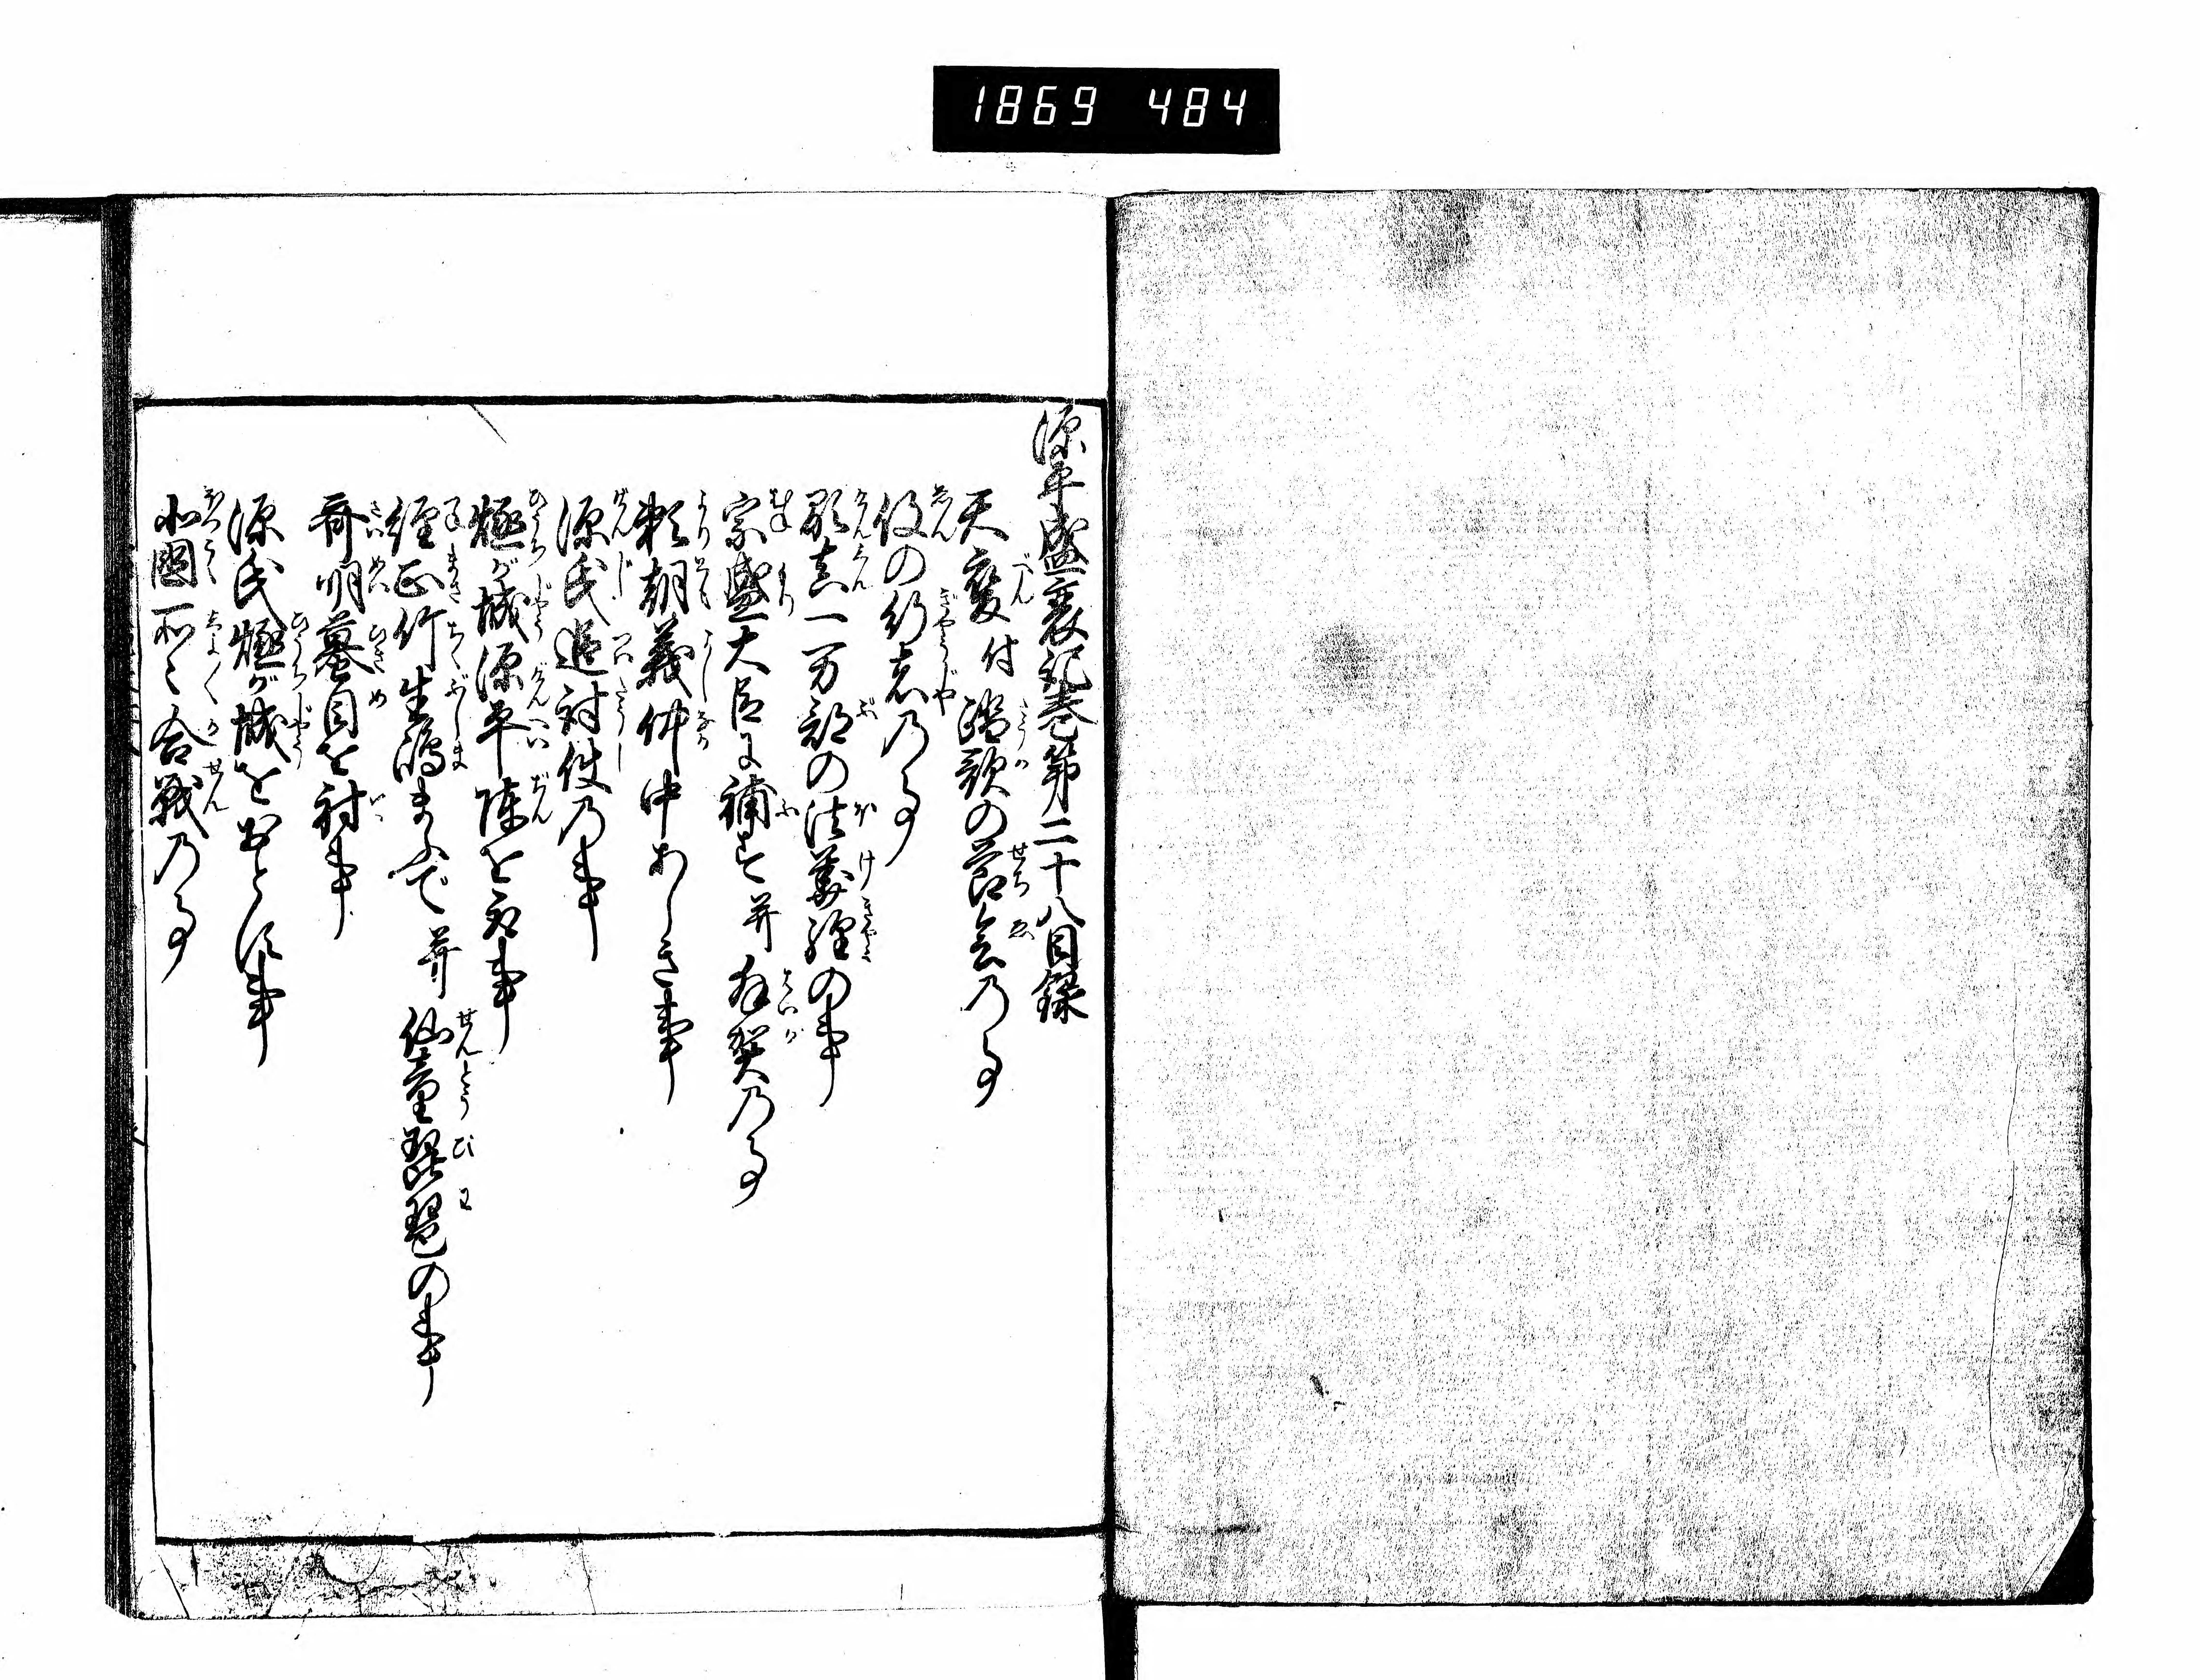 1869 484
源平盛衰記巻第二十八目録
天変付踏歌の節会乃事
役の行者乃事
顕真一万部の法華経の事
宗盛大臣に補す并拝賀乃事
頼朝義仲中あしき事
源氏追討使乃事
燧が城源平陣を取事
経正竹生嶋まふで并仙童琵琶の事
斉明蟇目を射事
源氏燧が城をおとす事
北国所々合戦乃事